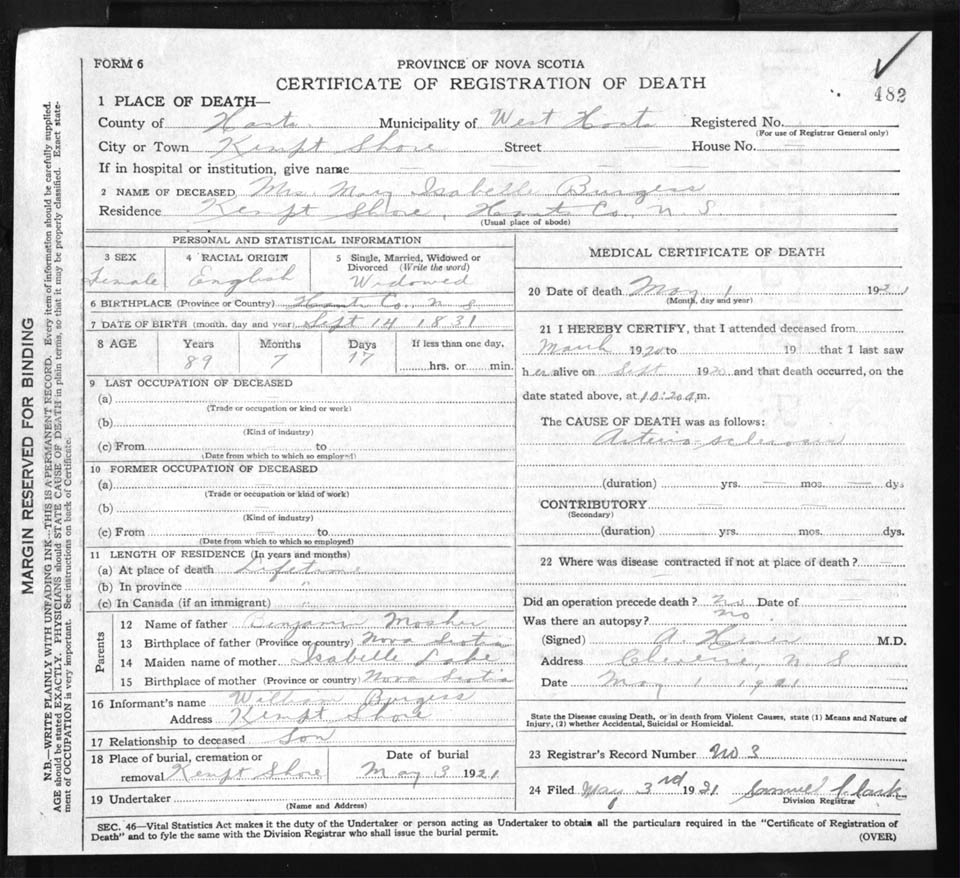 FORM 6
PROVINCE OF NOVA SCOTIA
CERTIFICATE OF REGISTRATION OF DEATH
482
1 PLACE OF DEATH—
County of Hants Municipality of West Hants Registered No.
(For use of Registrar General only)
City or Town Kempt Shore Street — House No. —
If in hospital or institution, give name
2 NAME OF DECEASED Mrs. May Isabelle Burgess
Residence Kempt Shore, Hants Co., N. S.
(Usual place of abode)
PERSONAL AND STATISTICAL INFORMATION
3 SEX 4 RACIAL ORIGIN 5 Single, Married, Widowed or
Divorced (Write the word)
Female English Widowed
6 BIRTHPLACE (Province or Country) Hants Co., N S
7 DATE OF BIRTH (month, day and year) Sept 14 1831
8 AGE Years Months Days If less than one day,
89 7 17 hrs. or min.
9 LAST OCCUPATION OF DECEASED
(a)
(Trade or occupation or kind or work)
(b)
(Kind of industry)
(c) From to
(Date from which to which so employed)
10 FORMER OCCUPATION OF DECEASED
(a)
(Trade or occupation or kind of work)
(b)
(Kind of industry)
(c) From to
(Date from which to which so employed)
11 LENGTH OF RESIDENCE (In years and months)
(a) At place of death Lifetime
(b) In province "
(c) In Canada (if an immigrant)
Parents
12 Name of father Benjamin Mosher
13 Birthplace of father (Province or country) Nova Scotia
14 Maiden name of mother Isabelle Lake
15 Birthplace of mother (Province or country) Nova Scotia
16 Informant's name William Burgess
Address Kempt Shore
17 Relationship to deceased Son
18 Place of burial, cremation or Date of burial
removal Kempt Shore May 3 1921
19 Undertaker
(Name and Address)
MEDICAL CERTIFICATE OF DEATH
20 Date of death May 1 1921
(Month, day and year)
21 I HEREBY CERTIFY, that I attended deceased from
March 1920 to 19 that I last saw
her alive on Sept 1920 and that death occurred, on the
date stated above, at 10:20 a.m.
The CAUSE OF DEATH was as follows:
Arterio-sclerosis
(duration) yrs. mos. dys
CONTRIBUTORY
(Secondary)
(duration) yrs. mos. dys.
22 Where was disease contracted if not at place of death?
Did an operation precede death? No Date of
Was there an autopsy? No
(Signed) A. M.D.
Address Cheverie, N S
Date May 1 1921
State the Disease causing Death, or in death from Violent Causes, state (1) Means and Nature of
Injury, (2) whether Accidental, Suicidal or Homicidal.
23 Registrar's Record Number No 3
24 Filed May 3rd 1921. Samuel
Division Registrar
SEC. 46—Vital Statistics Act makes it the duty of the Undertaker or person acting as Undertaker to obtain all the particulars required in the "Certificate of Registration of
Death" and to fyle the same with the Division Registrar who shall issue the burial permit.
(OVER)
MARGIN RESERVED FOR BINDING
N.B.—WRITE PLAINLY WITH UNFADING INK—THIS IS A PERMANENT RECORD. Every item of information should be carefully supplied.
AGE should be stated EXACTLY. PHYSICIANS should STATE CAUSE OF DEATH in plain terms, so that it may be properly classified. Exact state-
ment of OCCUPATION is very important. See instructions on back of Certificate.